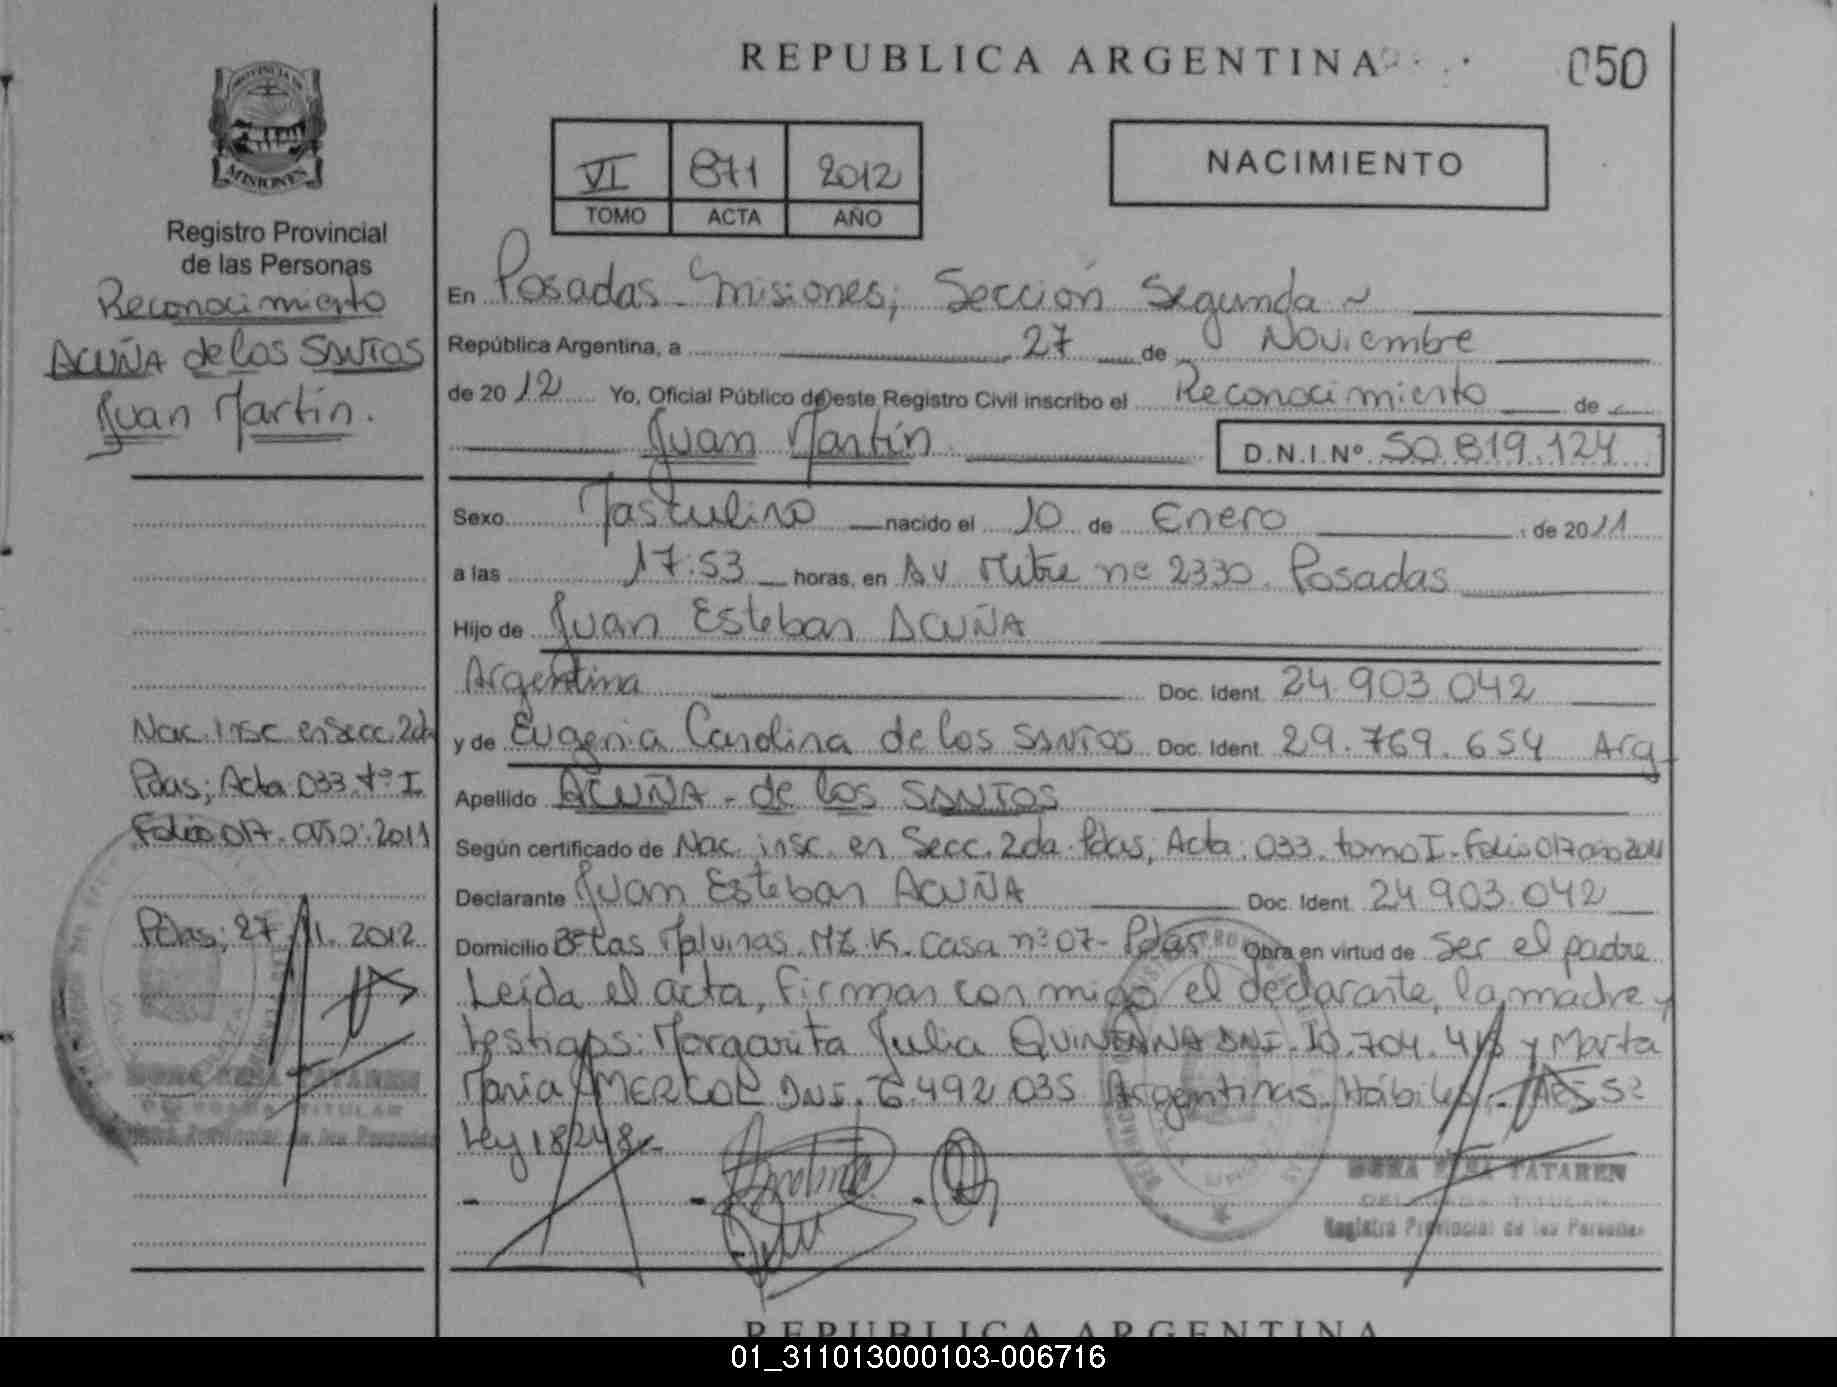 REPUBLICA ARGENTINA
050
PROVINCIA DE
MISIONES
Registro Provincial
de las Personas
Reconocimiento
ACUÑA de los SANTOS
Juan Martín.
Nac. insc en secc. 2da
Pdas; Acta 033 tº I
Folio 017. año: 2011
Pdas; 27/11. 2012
VI 871 2012
TOMO ACTA AÑO
NACIMIENTO
En Posadas - Misiones; Sección Segunda
República Argentina, a 27 de Noviembre
de 2012 Yo, Oficial Público de este Registro Civil inscribo el Reconocimiento de
Juan Martín D.N.I.Nº 50.819.124
Sexo Masculino nacido el 10 de Enero de 2011
a las 17:53 horas, en Av Mitre nº 2330. Posadas
Hijo de Juan Esteban ACUÑA
Argentina Doc. Ident. 24.903.042
y de Eugenia Carolina de los SANTOS Doc. Ident. 29.769.654 Arg
Apellido ACUÑA - de los SANTOS
Según certificado de Nac. insc. en Secc. 2da. Pdas; Acta: 033. tomo I. Folio 017 año 2011
Declarante Juan Esteban ACUÑA Doc. Ident. 24.903.042
Domicilio Bº Las Malvinas. MZ. K. Casa nº 07 - Pdas Obra en virtud de ser el padre
Leída el acta, firman conmigo el declarante, la madre y
testigos: Margarita Julia QUINTANA DNI. 10.704. y Marta
María DNI. 6.492.035 Argentinas. Hábiles.
Ley 18248.-
TATAREN
TITULAR
Registro Provincial de las Personas
TATAREN
TITULAR
Registro Provincial de las Personas
REPUBLICA ARGENTINA
01_311013000103-006716